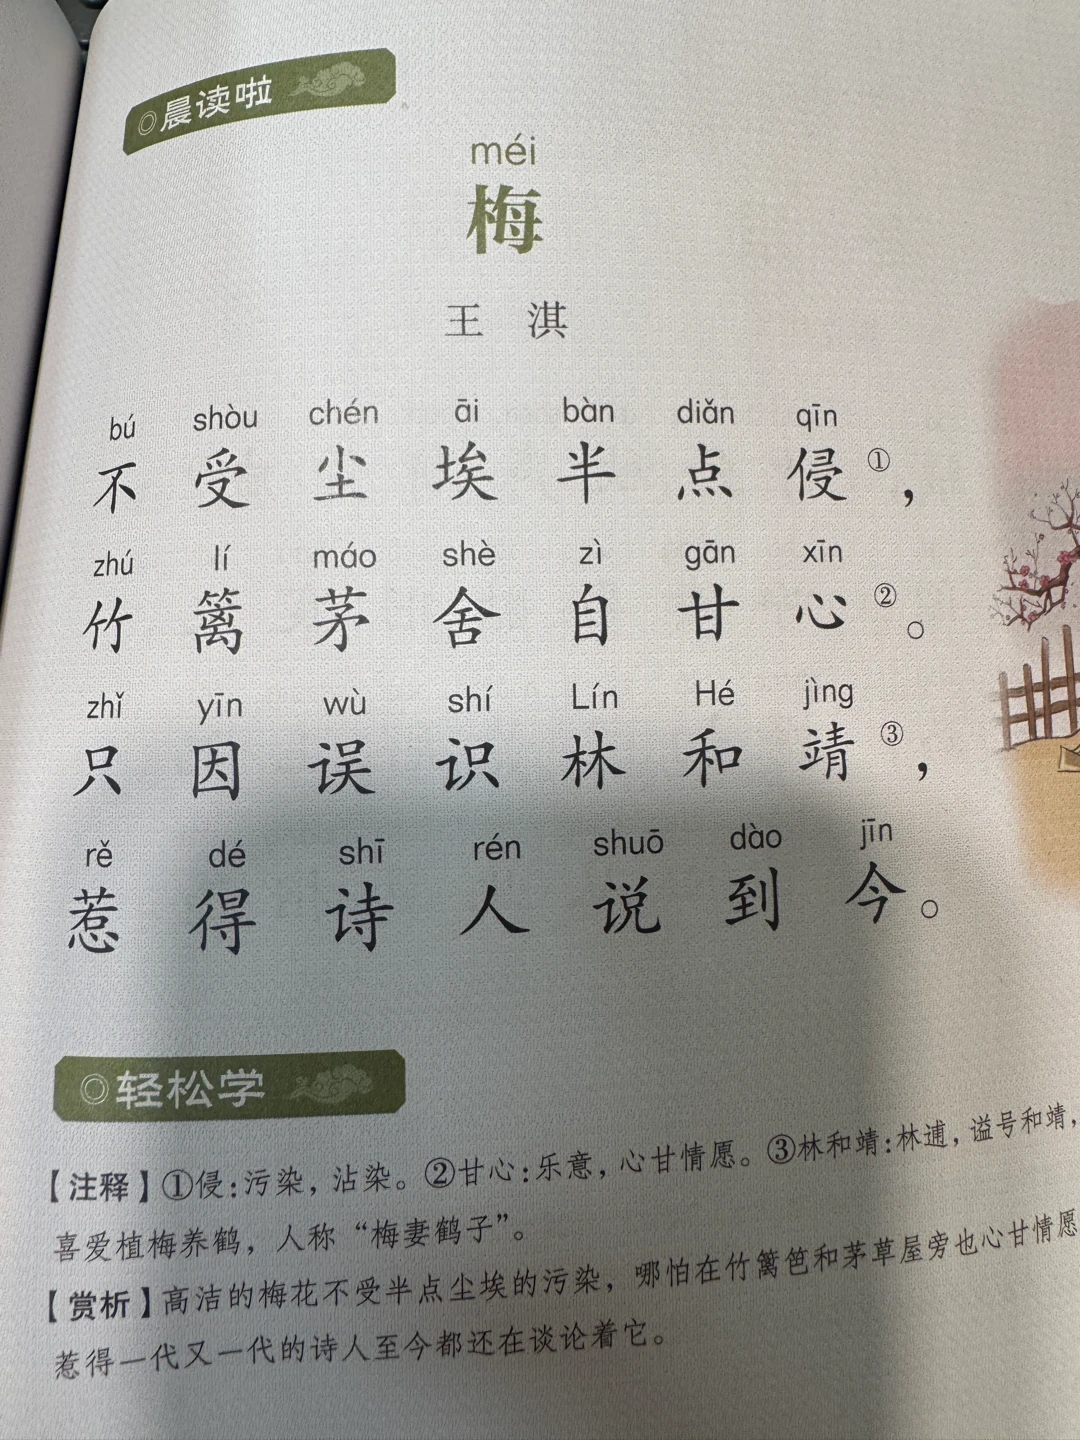 ◎晨读啦
méi
梅
王 淇
bú shòu chén āi bàn diǎn qīn
不受尘埃半点侵①，
zhú lí máo shè zì gān xīn
竹篱茅舍自甘心②。
zhǐ yīn wù shí Lín Hé jìng
只因误识林和靖③，
rě dé shī rén shuō dào jīn
惹得诗人说到今。
◎轻松学
【注释】①侵：污染，沾染。②甘心：乐意，心甘情愿。③林和靖：林逋，谥号和靖，
喜爱植梅养鹤，人称“梅妻鹤子”。
【赏析】高洁的梅花不受半点尘埃的污染，哪怕在竹篱笆和茅草屋旁也心甘情愿
惹得一代又一代的诗人至今都还在谈论着它。